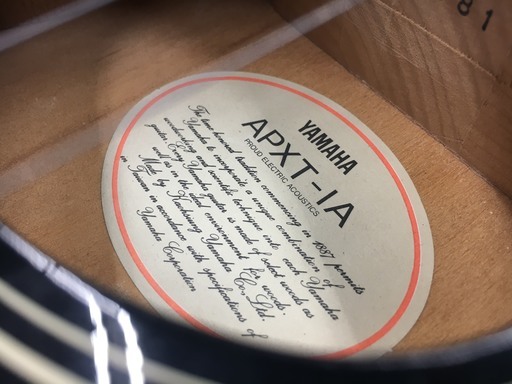 81
YAMAHA
APXT-1A
PROUD ELECTRIC ACOUSTICS
The time-honored tradition commencing in 1887 permits
Yamaha to incorporate a unique combination of
woodworking and scientific technique into each Yamaha
guitar. Every Yamaha guitar is made of select woods as
well as in the ideal environment for woods.
Made by Kaohsiung Yamaha Co., Ltd.
in Taiwan in accordance with specifications of
Yamaha Corporation